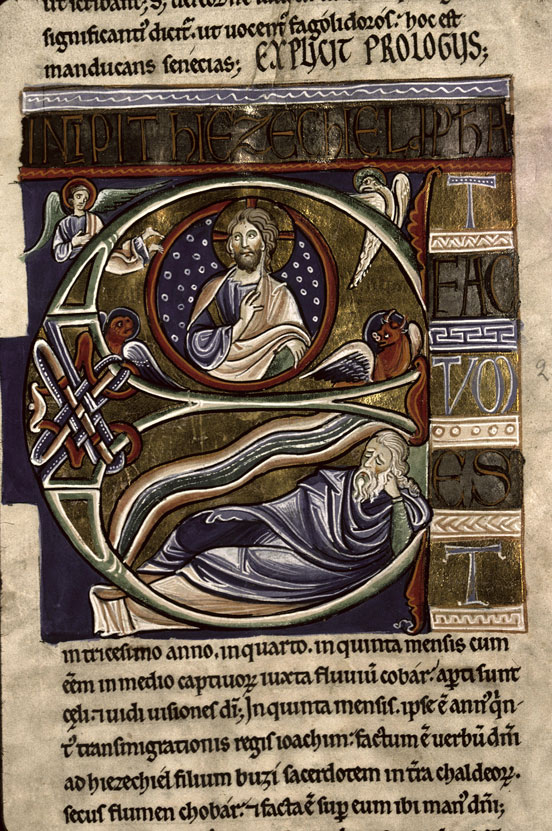 significantur dicitur. ut uocem fagolidoros: hoc est
manducans senecias; EXPLICIT PROLOGUS;
INCIPIT HIEZECHIEL PPHA
ET
FAC
TUM
EST
in tricesimo anno. in quarto. in quinta mensis cum
eēm in medio captiuoꝝ iuxta fluuiū cobar: apti sunt
cęli. ⁊ uidi uisiones dī; In quinta mensis. ipse ē annꝰ q̄n-
tꝰ transmigrationis regis ioachim: factum ē uerbū dn̄i
ad hiezechiel filium buzi sacerdotem in tr̄a chaldeoꝝ.
secus flumen chobar: ⁊ facta ē sup eum ibi manꝰ dn̄i;